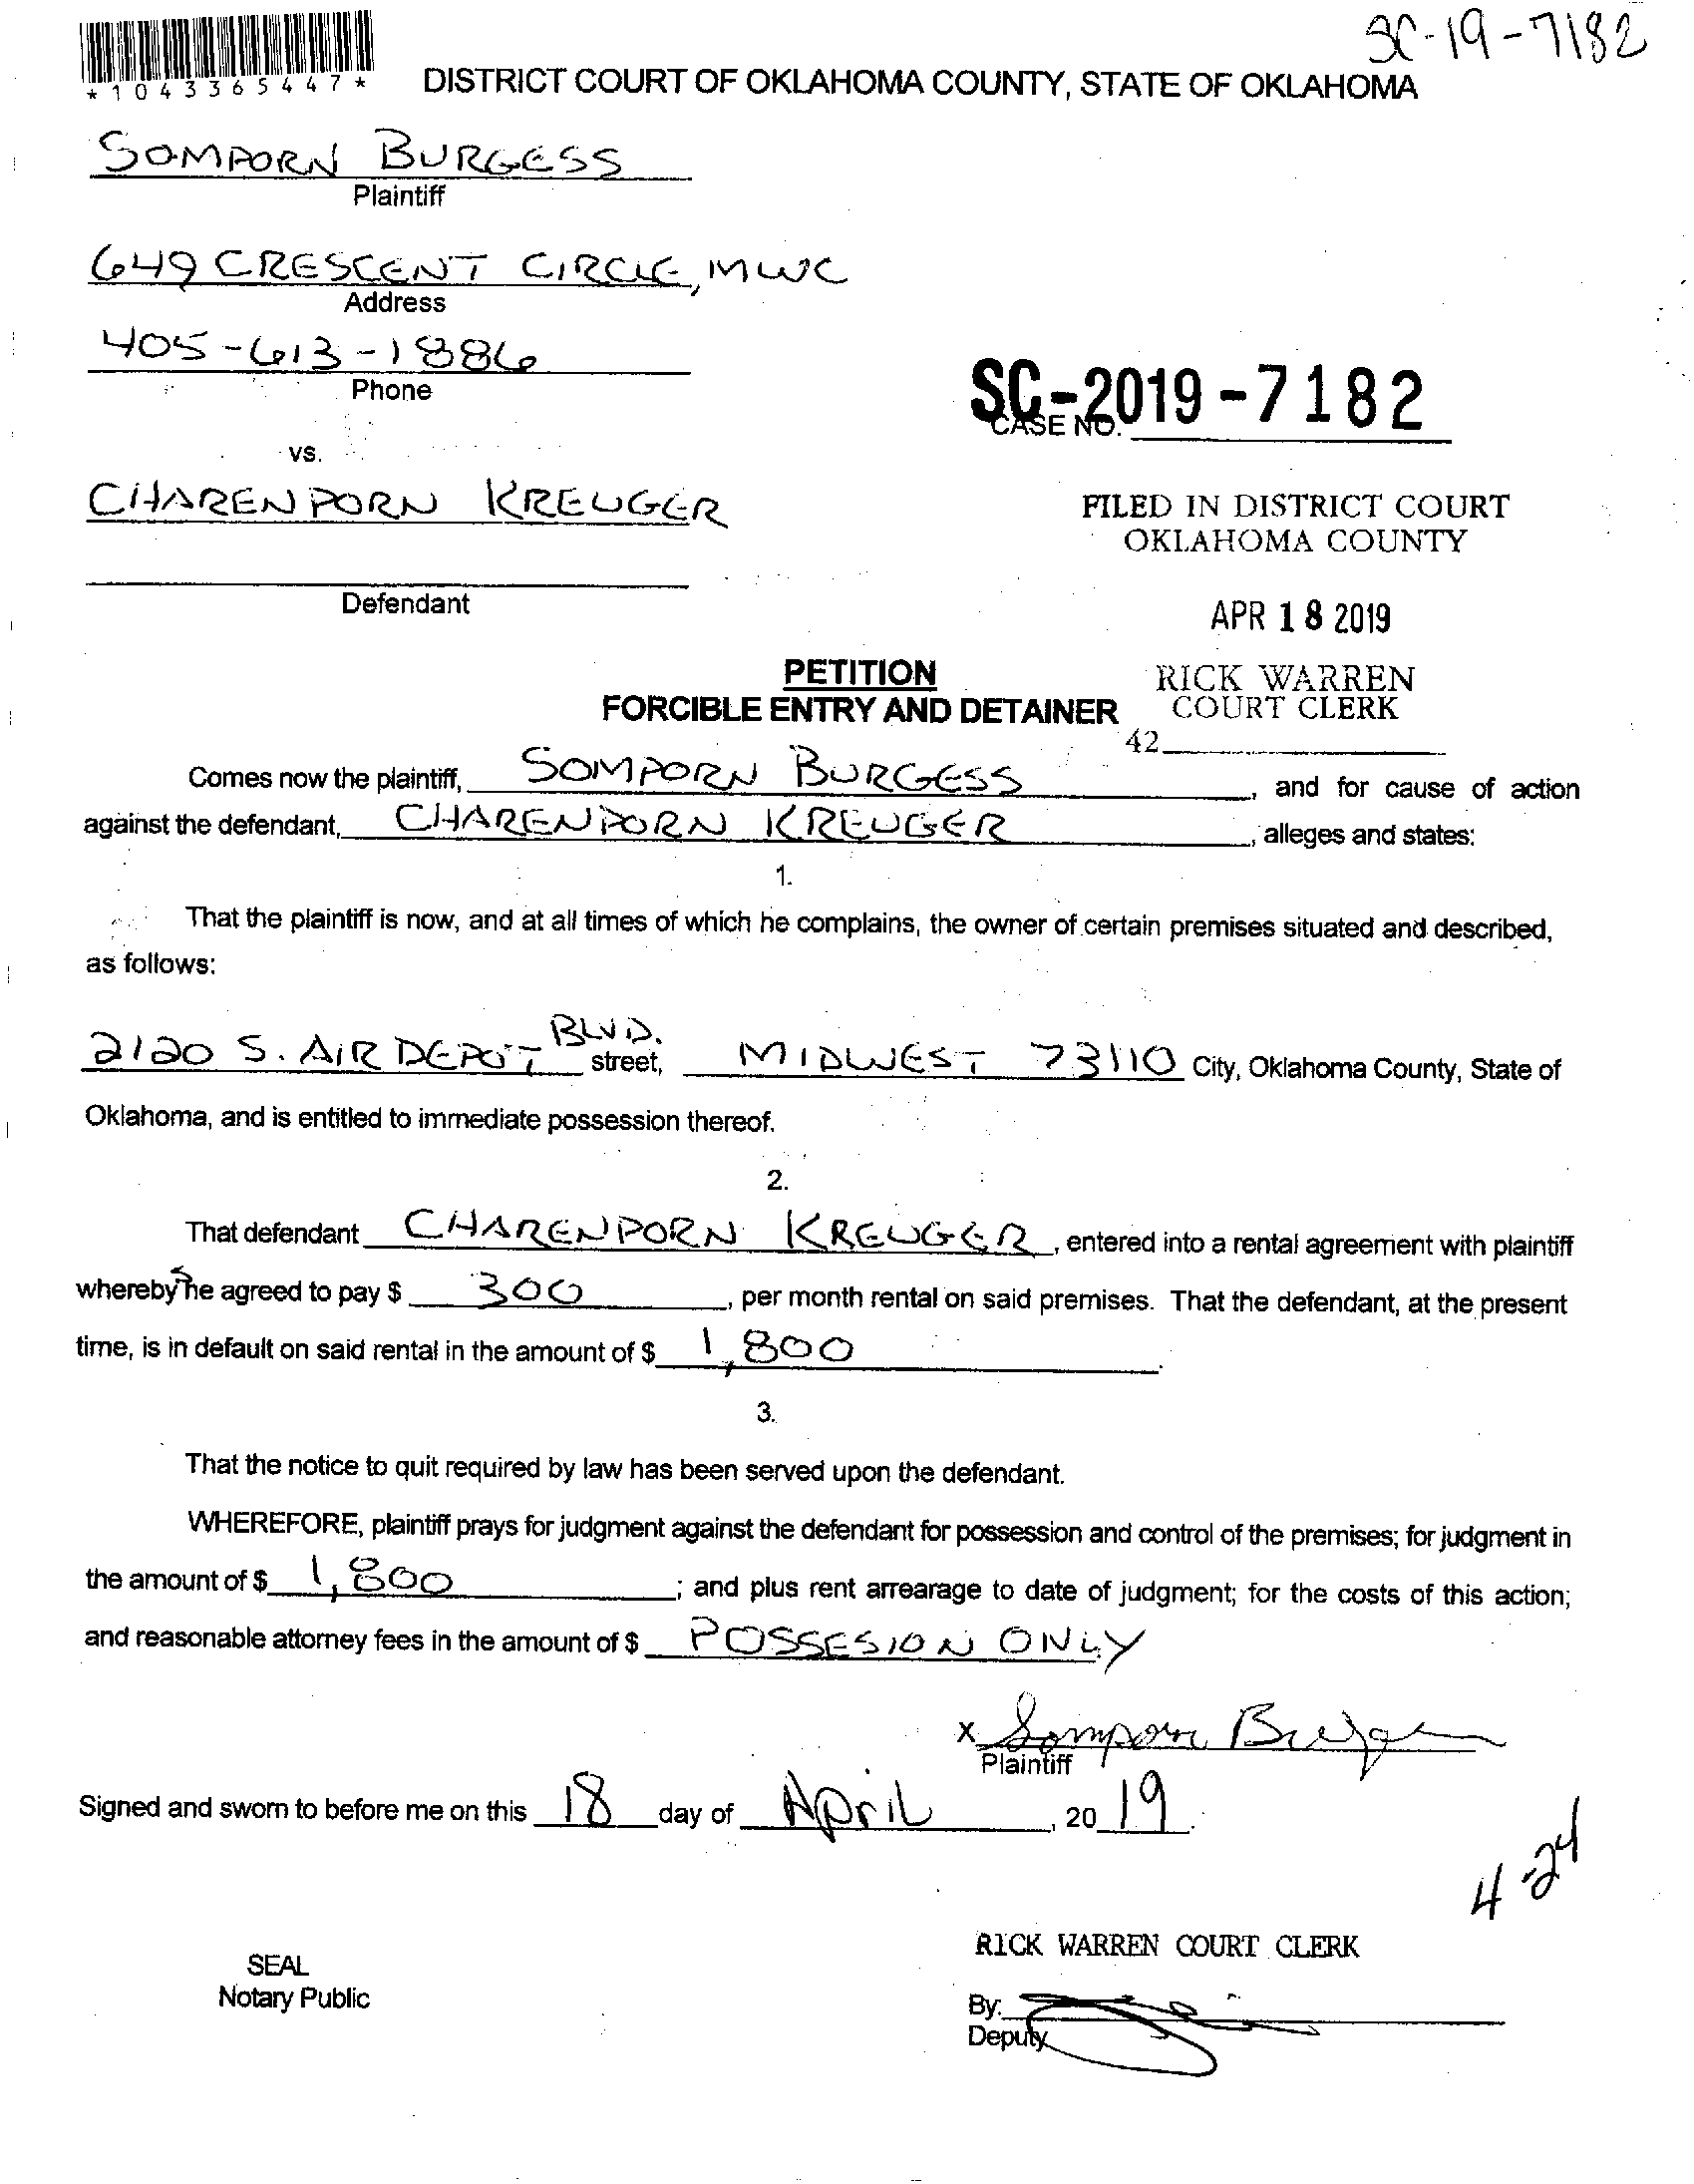 SC-19-7182
*1043365447*
DISTRICT COURT OF OKLAHOMA COUNTY, STATE OF OKLAHOMA
SOMPORN BURGESS
Plaintiff
649 CRESCENT CIRCLE, MWC
Address
405-613-1886
Phone
SC-2019-7182
CASE NO.
vs.
CHARENPORN KREUGER
FILED IN DISTRICT COURT
OKLAHOMA COUNTY
Defendant
APR 18 2019
PETITION
RICK WARREN
FORCIBLE ENTRY AND DETAINER
COURT CLERK
42
Comes now the plaintiff, SOMPORN BURGESS, and for cause of action
against the defendant, CHARENPORN KREUGER, alleges and states:
1.
That the plaintiff is now, and at all times of which he complains, the owner of certain premises situated and described,
as follows:
2120 S. AIR DEPOT BLVD. street, MIDWEST 73110 City, Oklahoma County, State of
Oklahoma, and is entitled to immediate possession thereof.
2.
That defendant CHARENPORN KREUGER, entered into a rental agreement with plaintiff
whereby she agreed to pay $ 300, per month rental on said premises. That the defendant, at the present
time, is in default on said rental in the amount of $ 1,800.
3.
That the notice to quit required by law has been served upon the defendant.
WHEREFORE, plaintiff prays for judgment against the defendant for possession and control of the premises; for judgment in
the amount of $ 1,800; and plus rent arrearage to date of judgment; for the costs of this action;
and reasonable attorney fees in the amount of $ POSSESION ONLY
x Somporn Burgess
Plaintiff
Signed and sworn to before me on this 18 day of April, 2019.
4-24
RICK WARREN COURT CLERK
SEAL
Notary Public
By:
Deputy